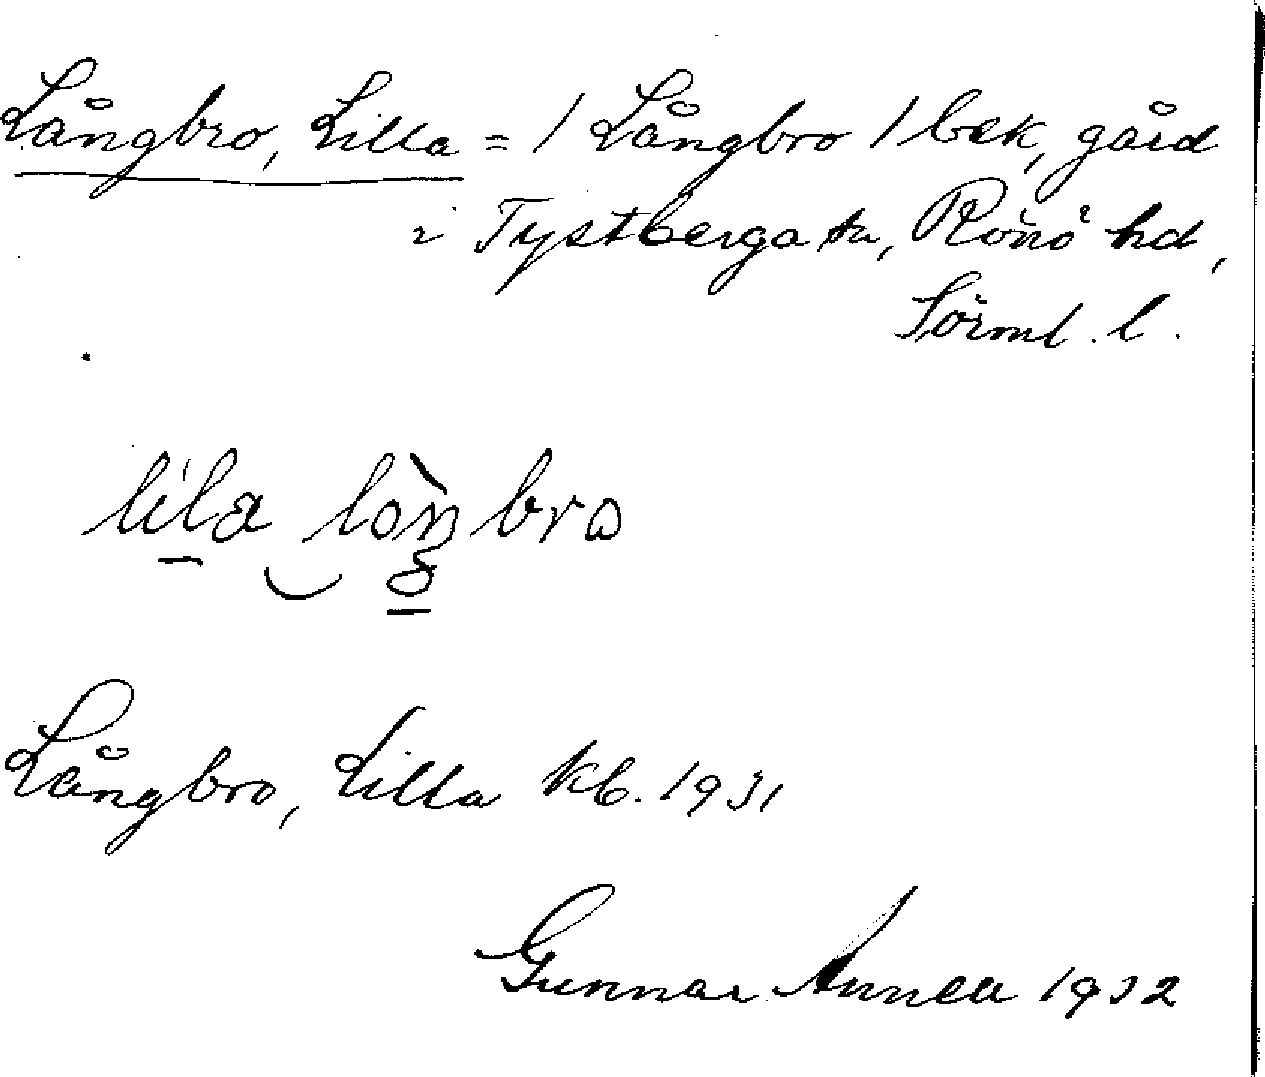 Långbro, Lilla = / Långbro / bek, gård
i Tystberga sn, Rönö hd,
Sörml. l.
lila loŋbro
Långbro, Lilla kb. 1931
Gunnar Linnea 1932